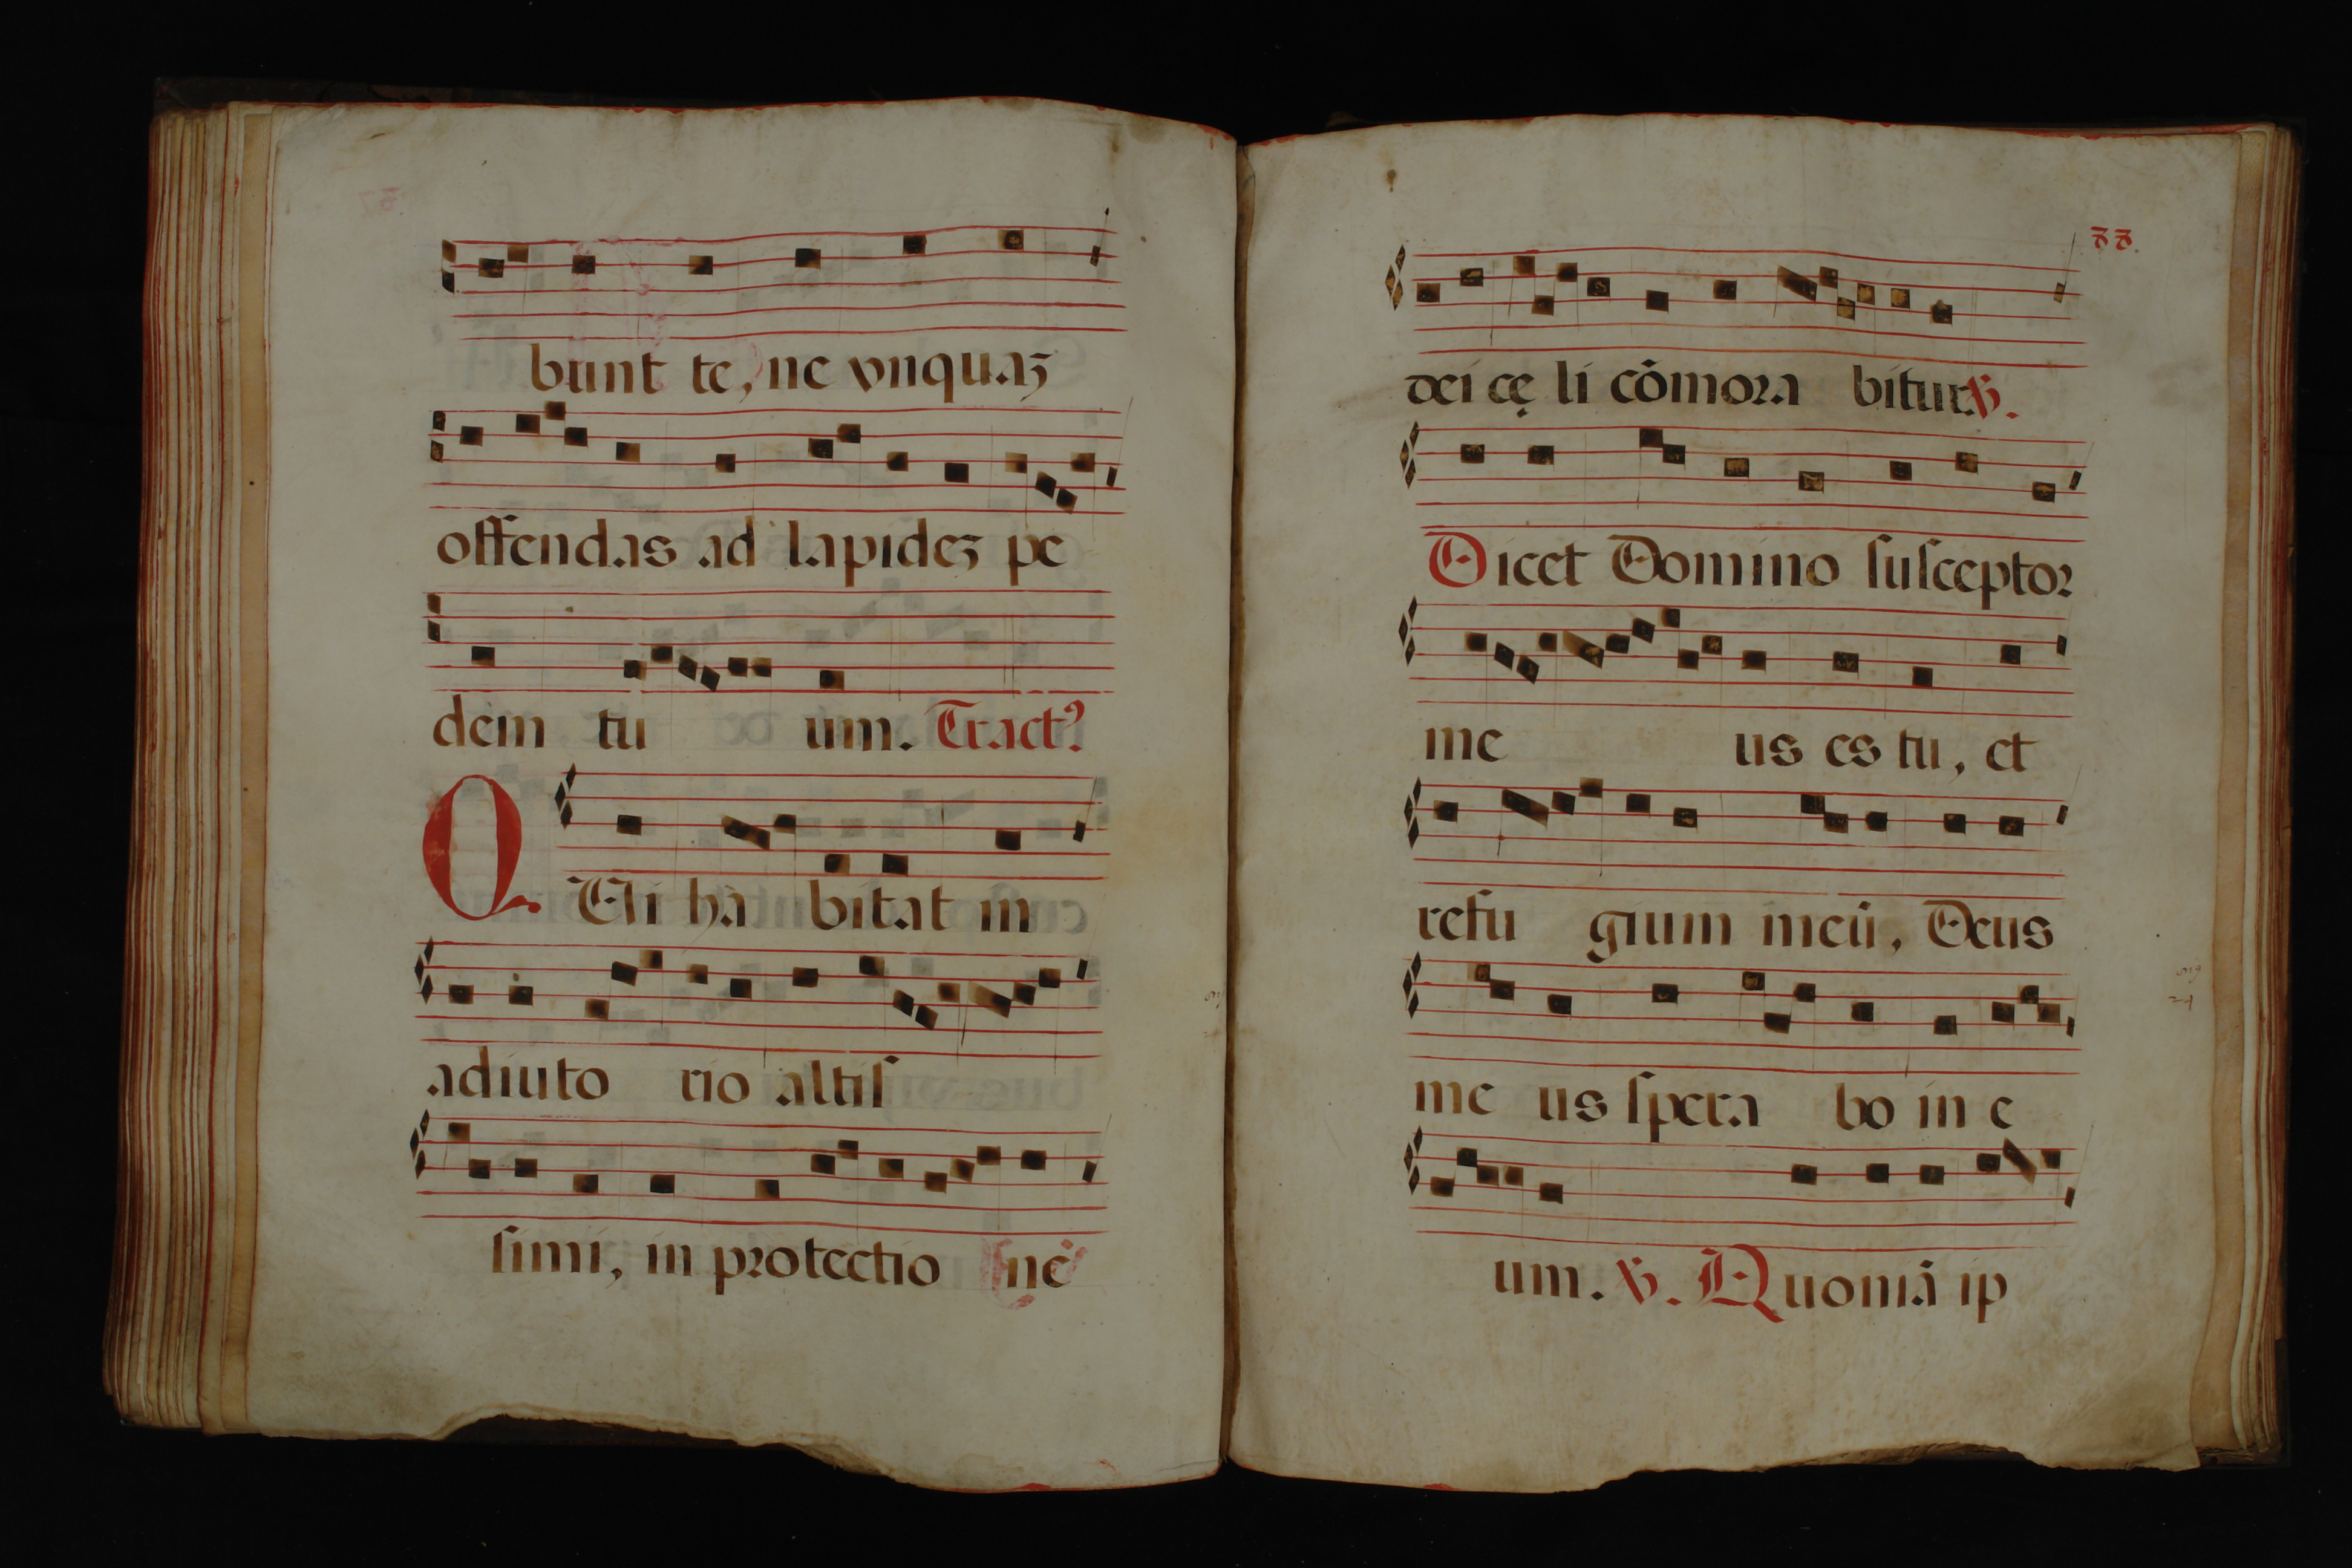 bunt te, ne vnquaʒ
offendas ad lapideʒ pe
dem tu um. Tractꝰ
QUi ha bitat in
adiuto rio altiſ
ſimi, in protectio ne
88.
dei cę li cõmora bitur. ℣.
Dicet Domino ſuſceptor
me us es tu, et
refu gium meũ, Deus
me us ſpera bo in e
um. ℣. Quoniã ip